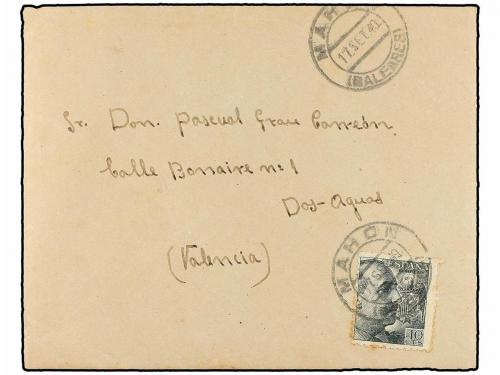 MAHON
17.SET.41
(BALEARES)
Sr. Don. Pascual Grau Carreón
Calle Bonaire nº 1
Dos-Aguas
(Valencia)
MAHON
ESPAÑA
40
CTS